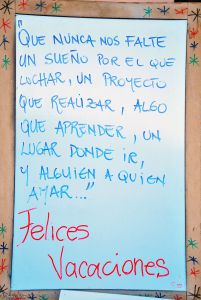 "QUE NUNCA NOS FALTE
UN SUEÑO POR EL QUE
LUCHAR, UN PROYECTO
QUE REALIZAR, ALGO
QUE APRENDER, UN
LUGAR DONDE IR,
Y ALGUIÉN A QUIEN
AMAR..."
Felices
Vacaciones